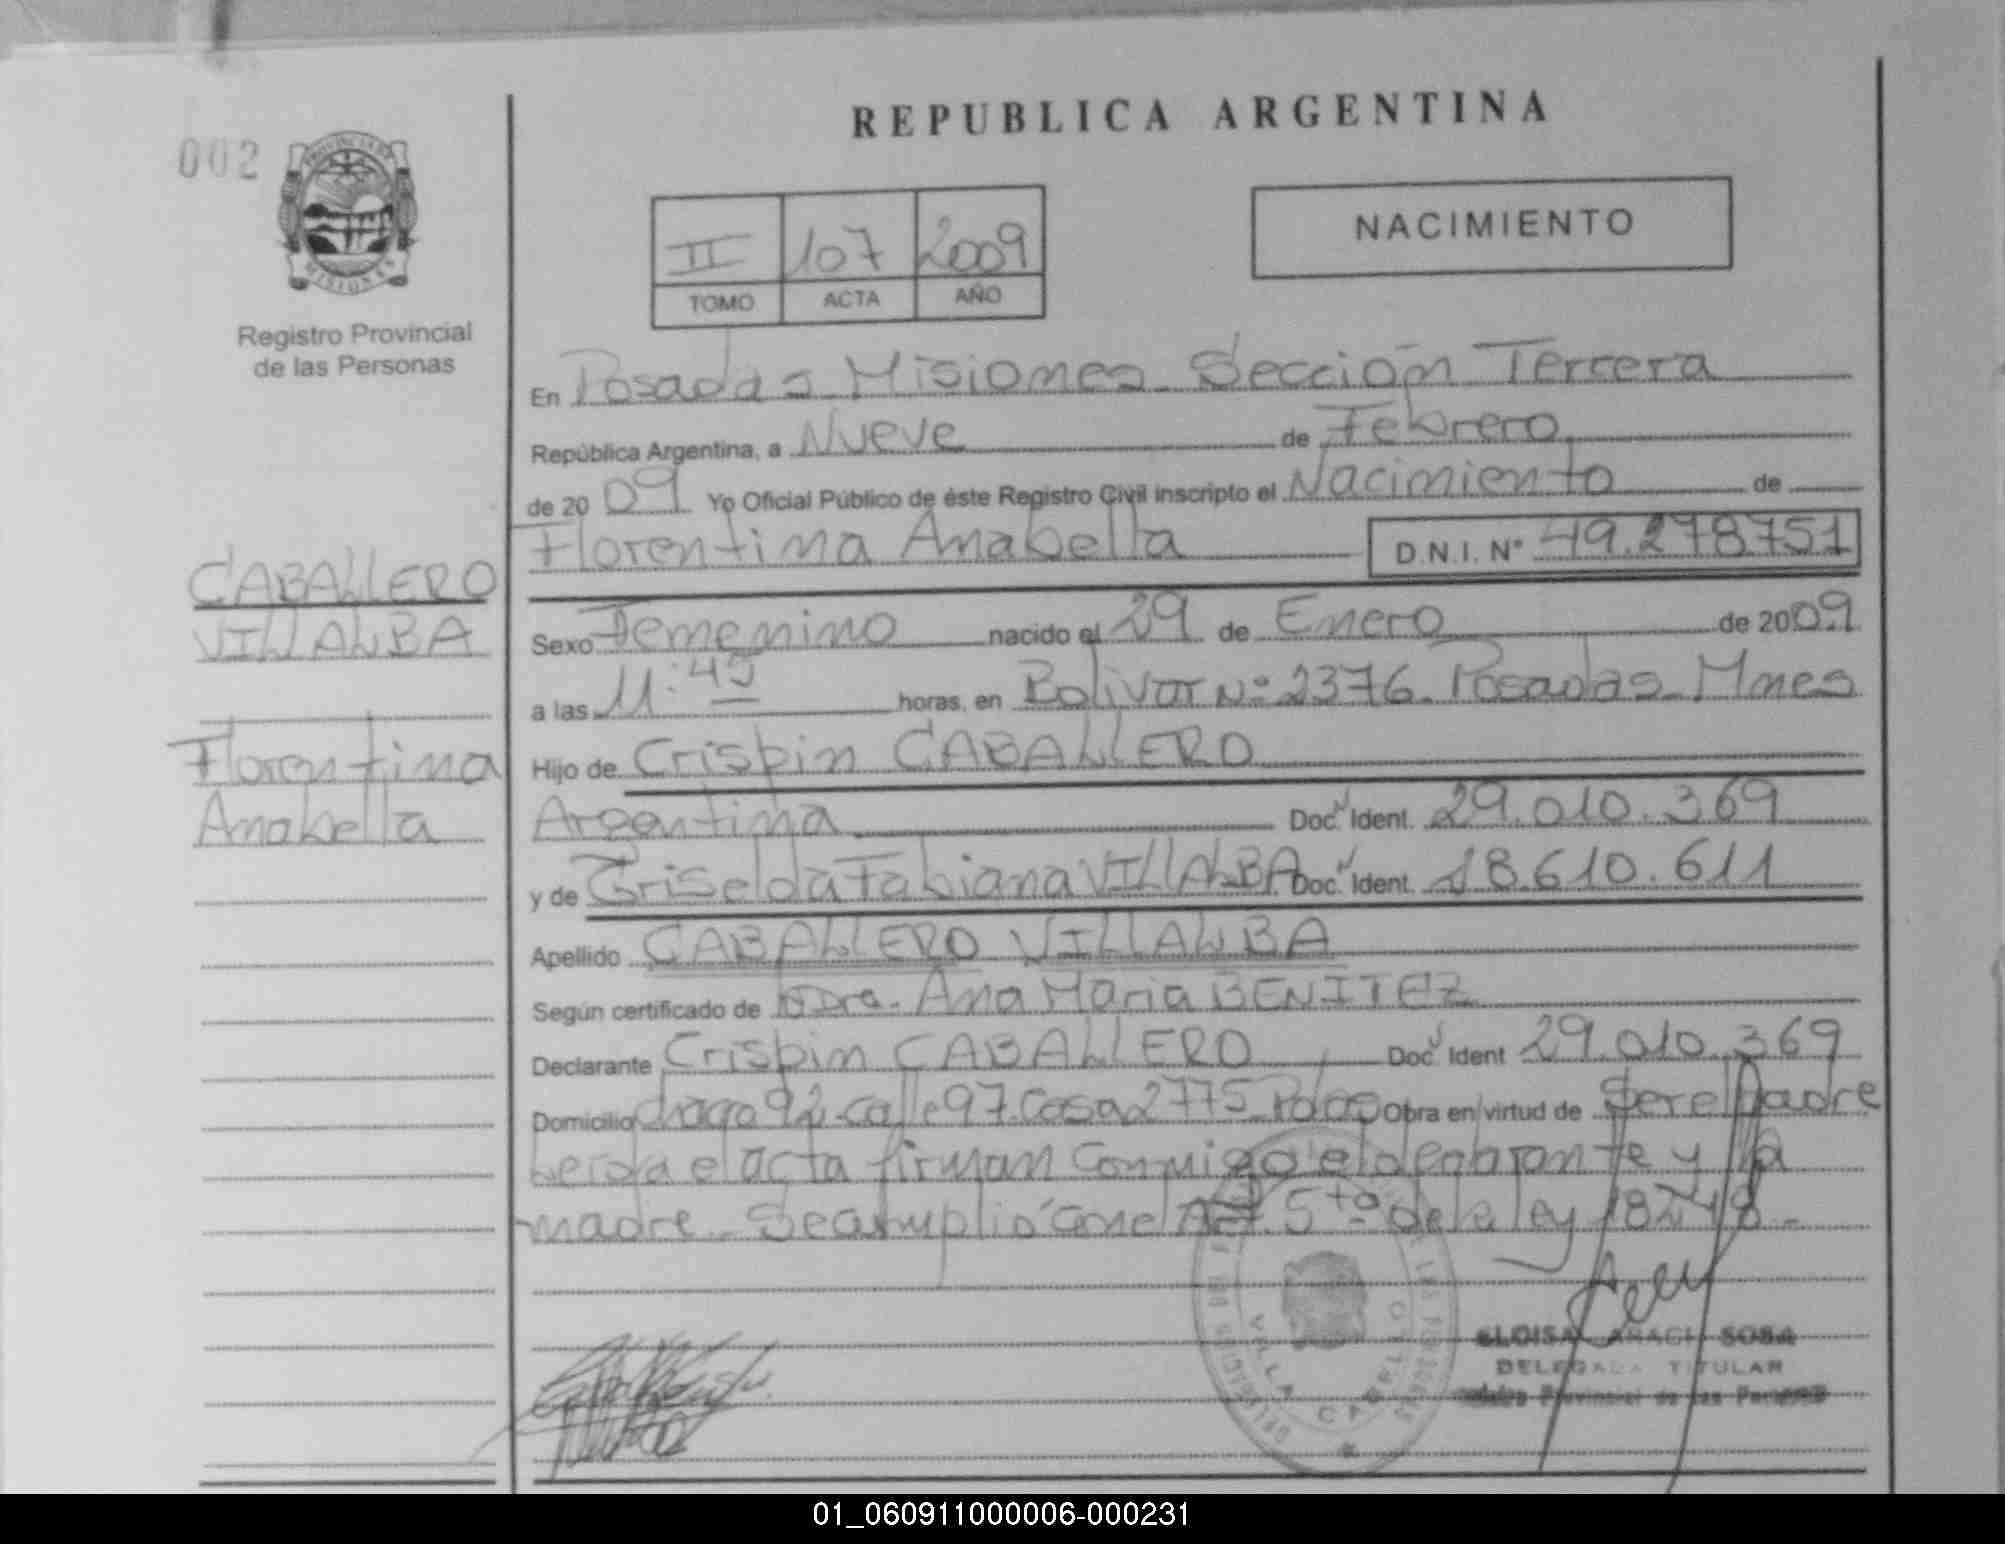 REPUBLICA ARGENTINA
002
PROVINCIA DE
MISIONES
Registro Provincial
de las Personas
II 107 2009
TOMO ACTA AÑO
NACIMIENTO
En Posadas Misiones Sección Tercera
República Argentina, a Nueve de Febrero
de 2009 Yo Oficial Público de éste Registro Civil inscripto el Nacimiento de
Florentina Anabella D.N.I. N° 49.278751
CABALLERO
VILLALBA
Florentina
Anabella
Sexo Femenino nacido el 29 de Enero de 2009
a las 11:45 horas, en Bolivar Nº 2376. Posadas Mnes
Hijo de Crispin CABALLERO
Argentina Doc. Ident. 29.010.369
y de Griselda Fabiana VILLALBA Doc. Ident. 18.610.611
Apellido CABALLERO VILLALBA
Según certificado de Dra. Ana Maria BENITEZ
Declarante Crispin CABALLERO Doc. Ident 29.010.369
Domicilio chacra 92 calle 97. Casa 2775 Obra en virtud de ser el Padre
leida el acta firman conmigo el declarante y la
madre. Se cumplió con el Art. 5to de la ley 18248.-
VILLA CABELLO
ELOISA ARACI SOSA
DELEGADA TITULAR
Provincial de las Personas
01_060911000006-000231